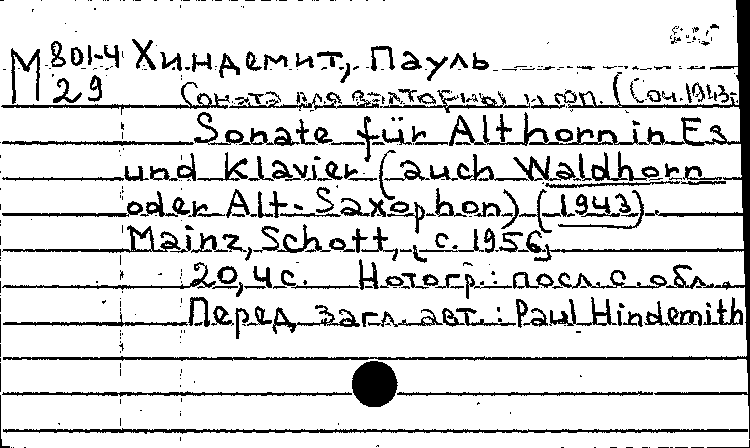 М 801-4 Хиндемит, Пауль
29 Соната для валторны и фп. (Соч. 1943г
Sonate für Althorn in Es
und Klavier (auch Waldhorn
oder Alt-Saxophon) (1943).
Mainz, Schott, [c. 1956]
20, 4 с. Нотогр.: посл. с. обл.
Перед загл. авт.: Paul Hindemith